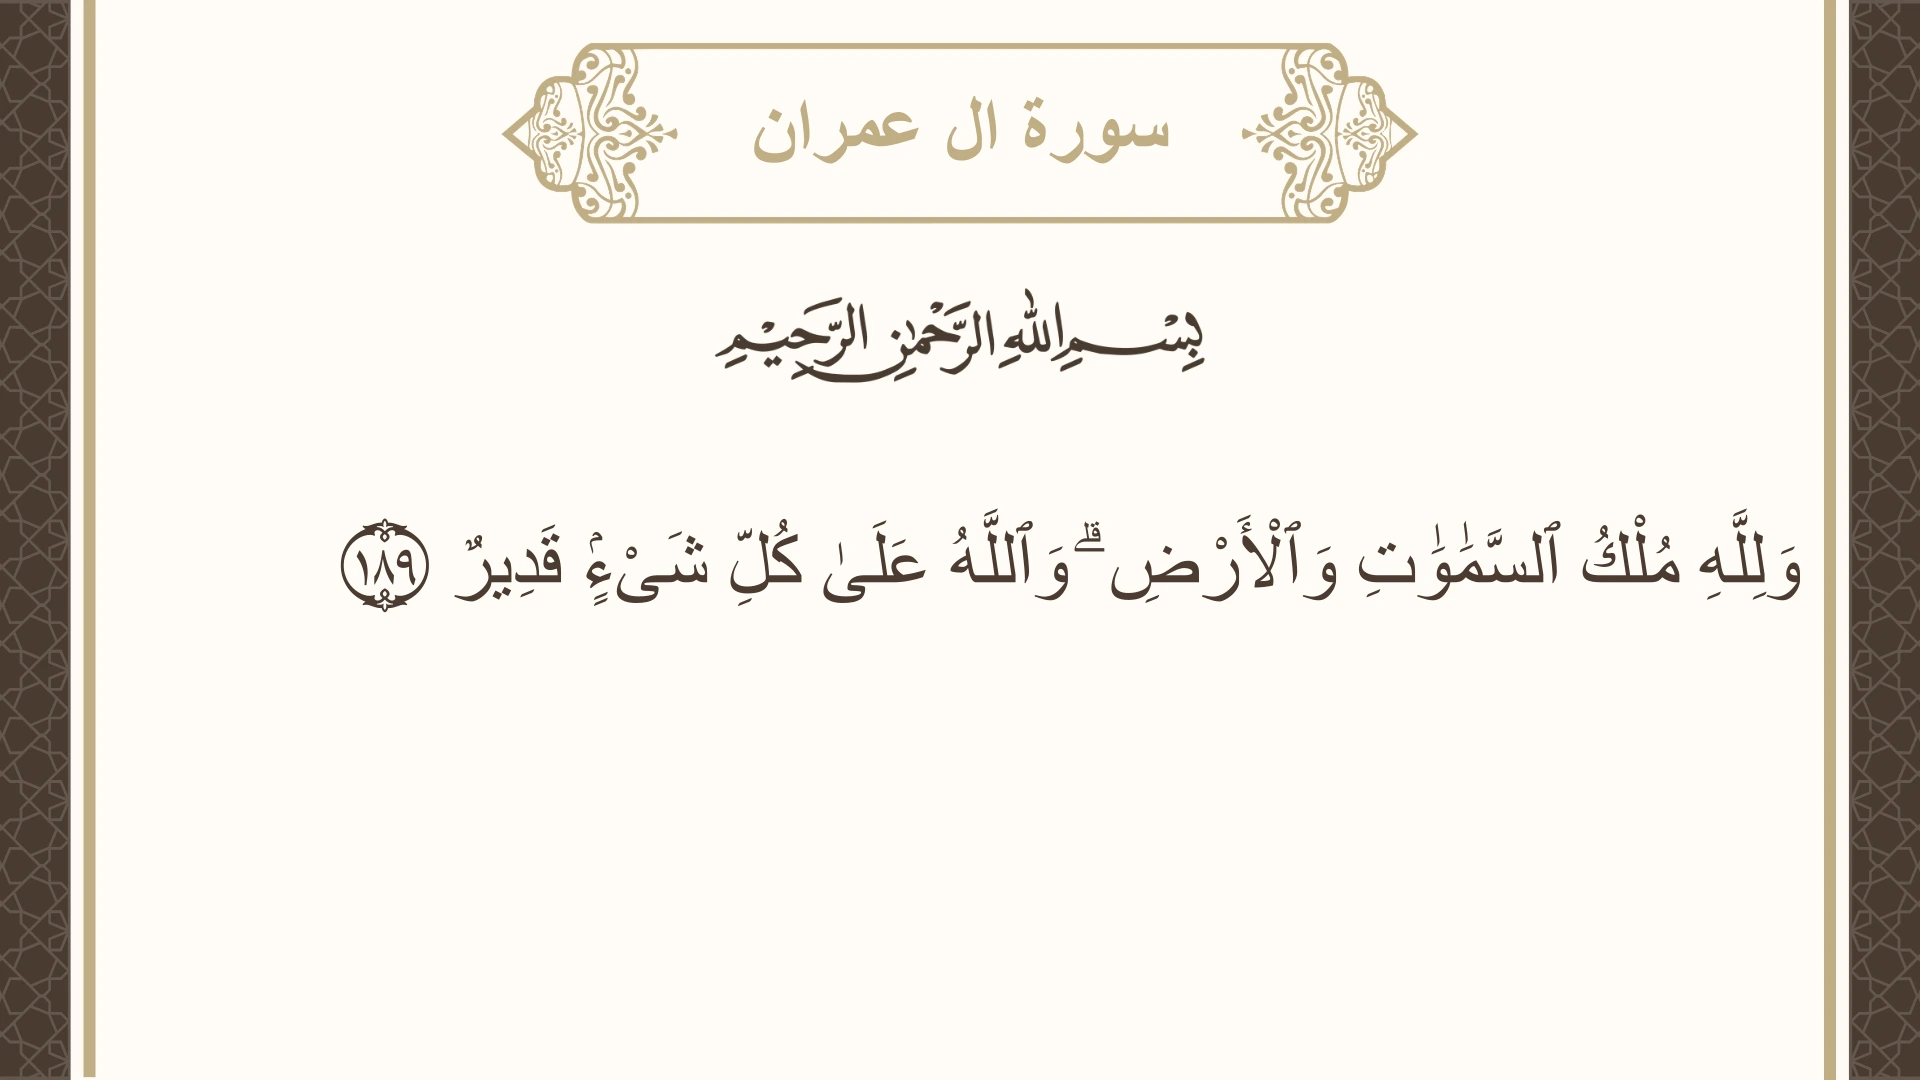 سورة ال عمران
بِسْمِ اللهِ الرَّحْمٰنِ الرَّحِيْمِ
وَلِلَّهِ مُلْكُ ٱلسَّمَٰوَٰتِ وَٱلْأَرْضِ ۗ وَٱللَّهُ عَلَىٰ كُلِّ شَىْءٍۢ قَدِيرٌ ١٨٩